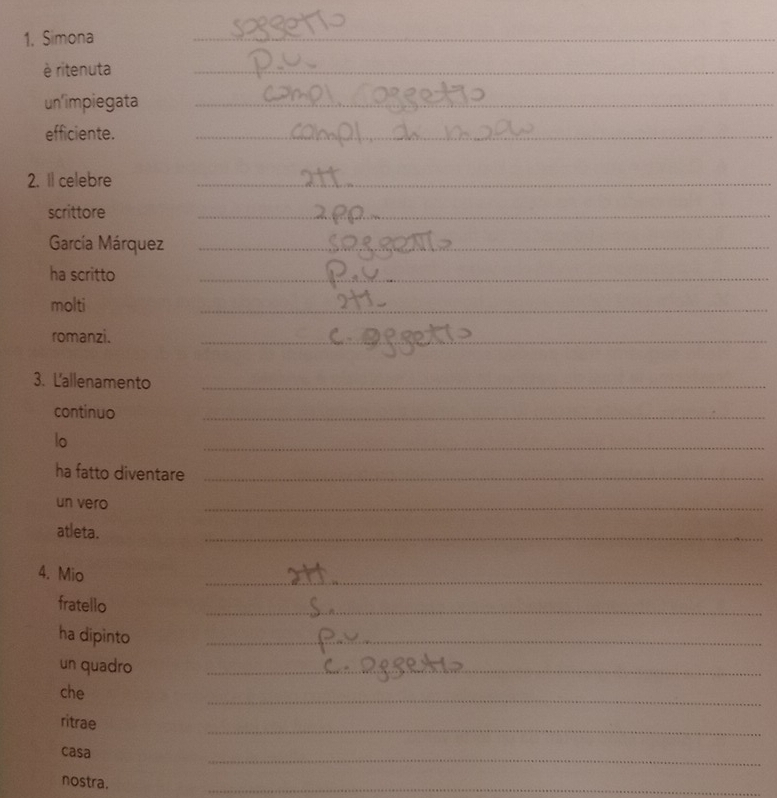 1. Simona soggetto
è ritenuta p.v.
un'impiegata compl. oggetto
efficiente. compl. di modo
2. Il celebre att.
scrittore app.
García Márquez soggetto
ha scritto p.v.
molti att.
romanzi. c. oggetto
3. L'allenamento
continuo
lo
ha fatto diventare
un vero
atleta.
4. Mio att.
fratello s.
ha dipinto p.v.
un quadro c. oggetto
che
ritrae
casa
nostra.